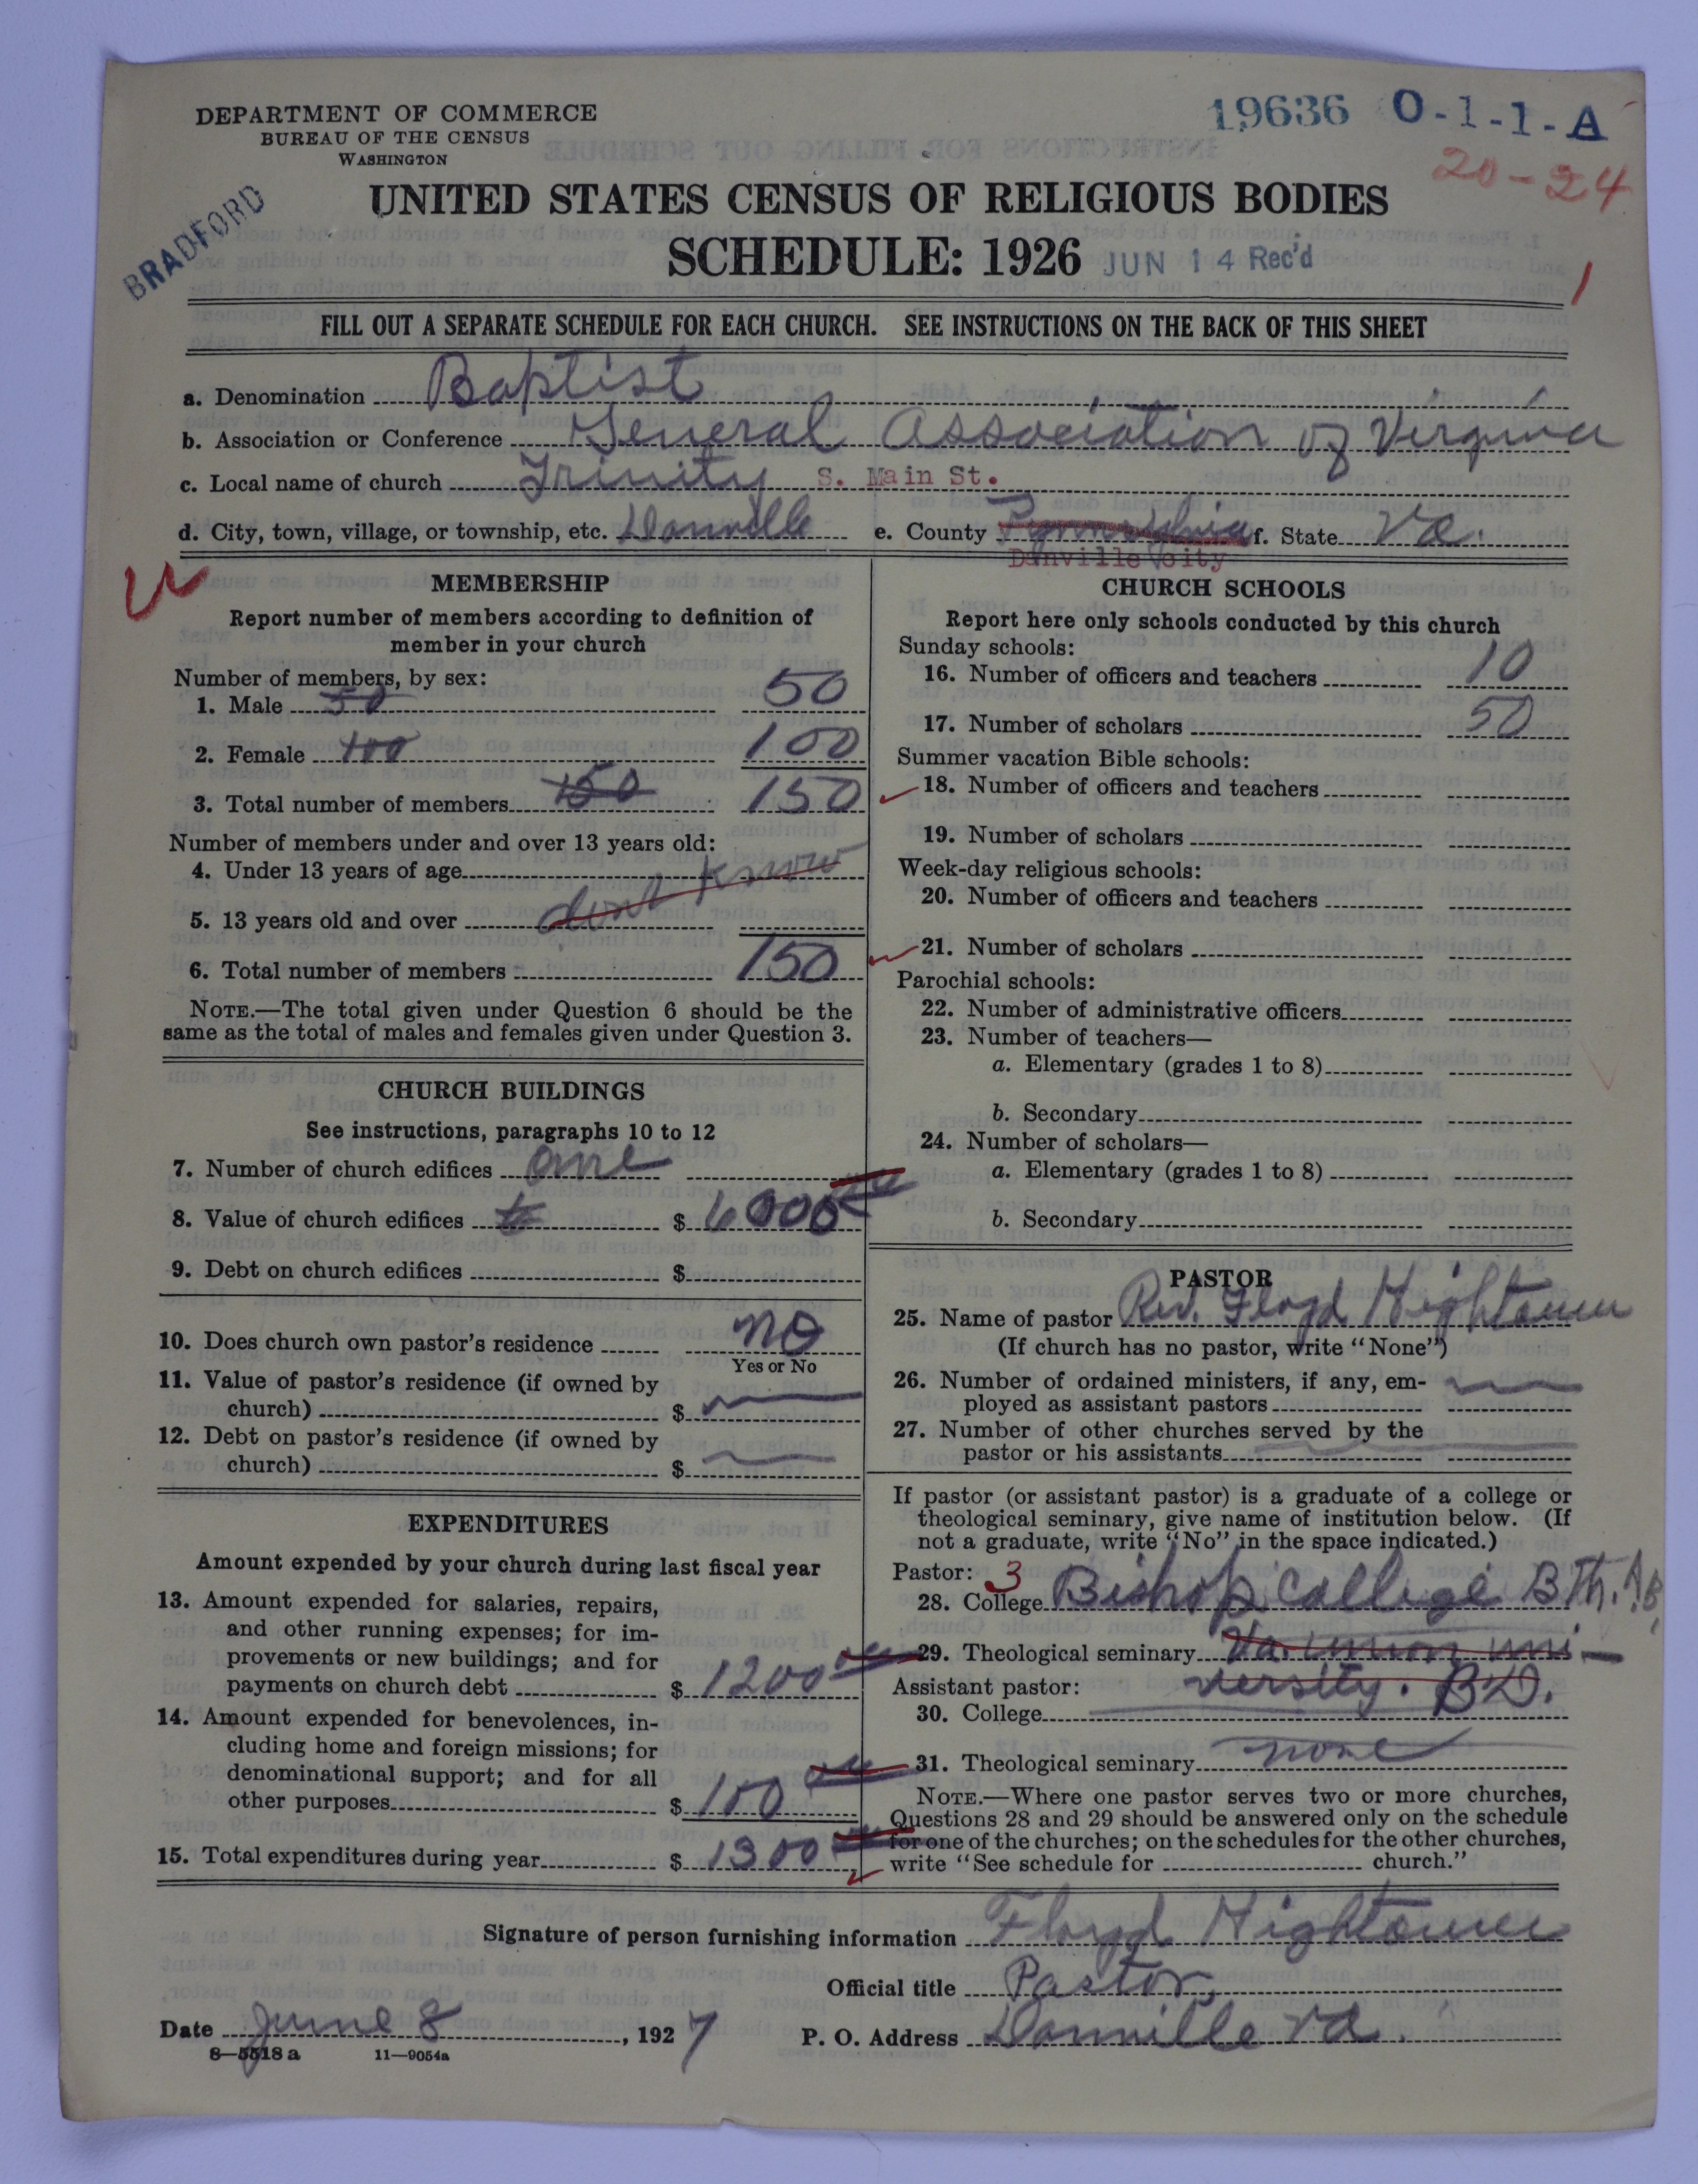 DEPARTMENT OF COMMERCE
BUREAU OF THE CENSUS
WASHINGTON
19636 O-1-1-A
20-24
BRADFORD
UNITED STATES CENSUS OF RELIGIOUS BODIES
SCHEDULE: 1926 JUN 14 Rec'd
1
FILL OUT A SEPARATE SCHEDULE FOR EACH CHURCH. SEE INSTRUCTIONS ON THE BACK OF THIS SHEET
a. Denomination Baptist
b. Association or Conference General Association of Virginia
c. Local name of church Trinity S. Main St.
d. City, town, village, or township, etc. Danville e. County f. State Va.
Danville city
MEMBERSHIP
Report number of members according to definition of
member in your church
Number of members, by sex:
1. Male 50 50
2. Female 100 100
3. Total number of members 150 150
Number of members under and over 13 years old:
4. Under 13 years of age
5. 13 years old and over dont know
6. Total number of members 150
NOTE.—The total given under Question 6 should be the
same as the total of males and females given under Question 3.
CHURCH BUILDINGS
See instructions, paragraphs 10 to 12
7. Number of church edifices one
8. Value of church edifices $ 6000
9. Debt on church edifices $
10. Does church own pastor's residence no
Yes or No
11. Value of pastor's residence (if owned by
church) $
12. Debt on pastor's residence (if owned by
church) $
EXPENDITURES
Amount expended by your church during last fiscal year
13. Amount expended for salaries, repairs,
and other running expenses; for im-
provements or new buildings; and for
payments on church debt $ 1200
14. Amount expended for benevolences, in-
cluding home and foreign missions; for
denominational support; and for all
other purposes $ 100
15. Total expenditures during year $ 1300
CHURCH SCHOOLS
Report here only schools conducted by this church
Sunday schools:
16. Number of officers and teachers 10
17. Number of scholars 50
Summer vacation Bible schools:
18. Number of officers and teachers
19. Number of scholars
Week-day religious schools:
20. Number of officers and teachers
21. Number of scholars
Parochial schools:
22. Number of administrative officers
23. Number of teachers—
a. Elementary (grades 1 to 8)
b. Secondary
24. Number of scholars—
a. Elementary (grades 1 to 8)
b. Secondary
PASTOR
25. Name of pastor Rev. Floyd Hightower
(If church has no pastor, write "None")
26. Number of ordained ministers, if any, em-
ployed as assistant pastors
27. Number of other churches served by the
pastor or his assistants
If pastor (or assistant pastor) is a graduate of a college or
theological seminary, give name of institution below. (If
not a graduate, write "No" in the space indicated.)
Pastor: 3
28. College Bishop College B Th. A B
29. Theological seminary Va. union uni-
Assistant pastor: versity. BD.
30. College
31. Theological seminary none
NOTE.—Where one pastor serves two or more churches,
Questions 28 and 29 should be answered only on the schedule
for one of the churches; on the schedules for the other churches,
write "See schedule for church."
Signature of person furnishing information Floyd Hightower
Official title Pastor
Date June 8, 1927 P. O. Address Danville Va.
8—5518 a 11—9054a